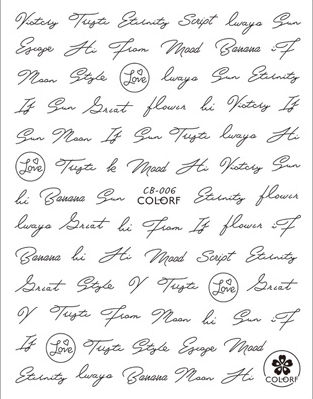 Victory Triste Eternity Script lwayo Sun
Escape Hi From Mood Banana :F
Moon Style Love lwayo Sun Eternity
If Sun Great flower hi Victory If
Sun Moon If Sun Triste lwayo Hi
Love Triste k Mood Hi Victory Sun
hi Banana Sun CB-006 COLORF Eternity flower
lwayo Great hi From If flower :F
Banana hi Hi Mood Script Eternity
Great Style V Triste Love Great
V Triste From Moon hi Sun :F
If Love Triste Style Escape Mood
Eternity lwayo Banana Moon Hi COLORF